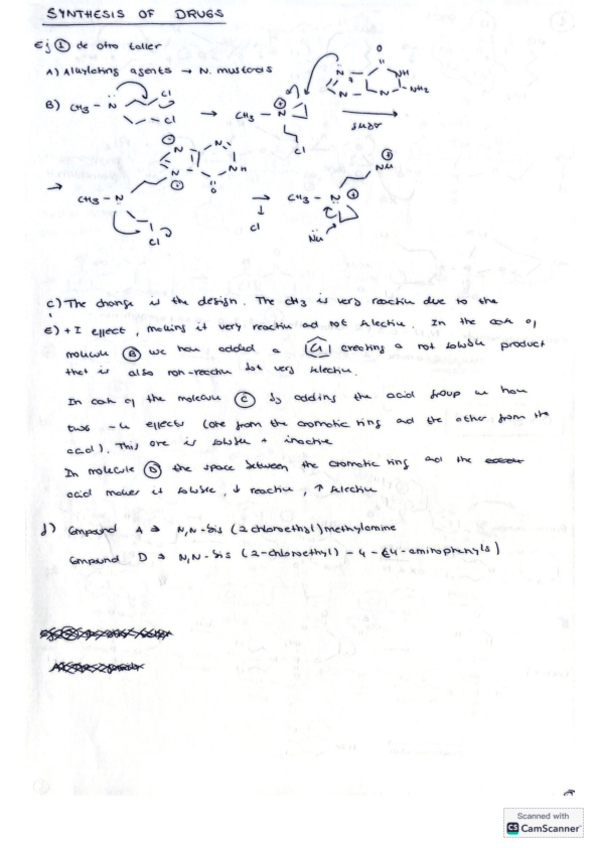 SYNTHESIS OF DRUGS
Ej ① de otro taller
A) Alkylating agents → N. mustards
B) CH3 - N Cl Cl → CH3 - N ⊕ Cl N N O NH N NH2
→ CH3 - N Cl N N N NH O → Cl CH3 - N ⊕ Nu Nu ⊕
c) The change is the design. The CH3 is very reactive due to the
e) + I effect, making it very reactive and not selective. In the case of
molecule Ⓑ we have added a creating a not soluble product
that is also non-reactive but very selective.
In case of the molecule Ⓒ by adding the acid group we have
two effects (one from the aromatic ring and the other from the
acid). This one is soluble + inactive
In molecule Ⓓ the space between the aromatic ring and the
acid makes it soluble, ↓ reactive, ↑ selective
Compound A → N,N-bis (2 chloroethyl) methylamine
Compound D → N,N-bis (2-chloroethyl) - 4 -
Scanned with
CS CamScanner